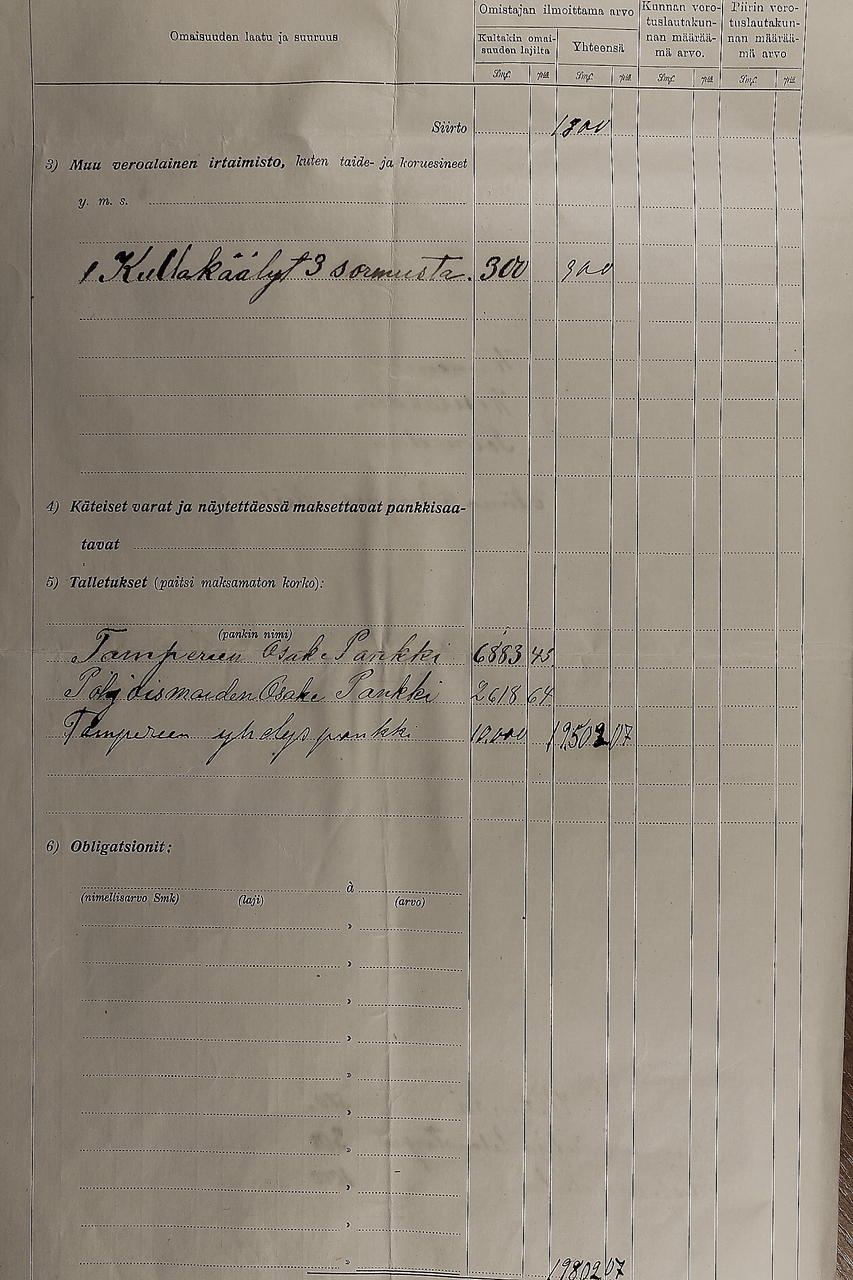 Omaisuuden laatu ja suuruus
Omistajan ilmoittama arvo
Kultakin omai-
suuden lajilta
Yhteensä
Kunnan vero-
tuslautakun-
nan määrää-
mä arvo.
Piirin vero-
tuslautakun-
nan määrää-
mä arvo
Smf. piä. Smf. piä. Smf. piä. Smf. piä.
Siirto
3) Muu veroalainen irtaimisto, kuten taide- ja koruesineet
y. m. s.
1 Kullakäälyt 3 sormusta. 300 300
4) Käteiset varat ja näytettäessä maksettavat pankkisaa-
tavat
5) Talletukset (paitsi maksamaton korko):
(pankin nimi)
Tampereen Osake Pankki 6883 43
Pohjoismaiden Osake Pankki 2618 64
Tampereen yhdyspankki 10.000 19502 07
6) Obligatsionit:
à
(nimellisarvo Smk) (laji) (arvo)
»
»
»
»
»
»
»
»
»
» 19802 07